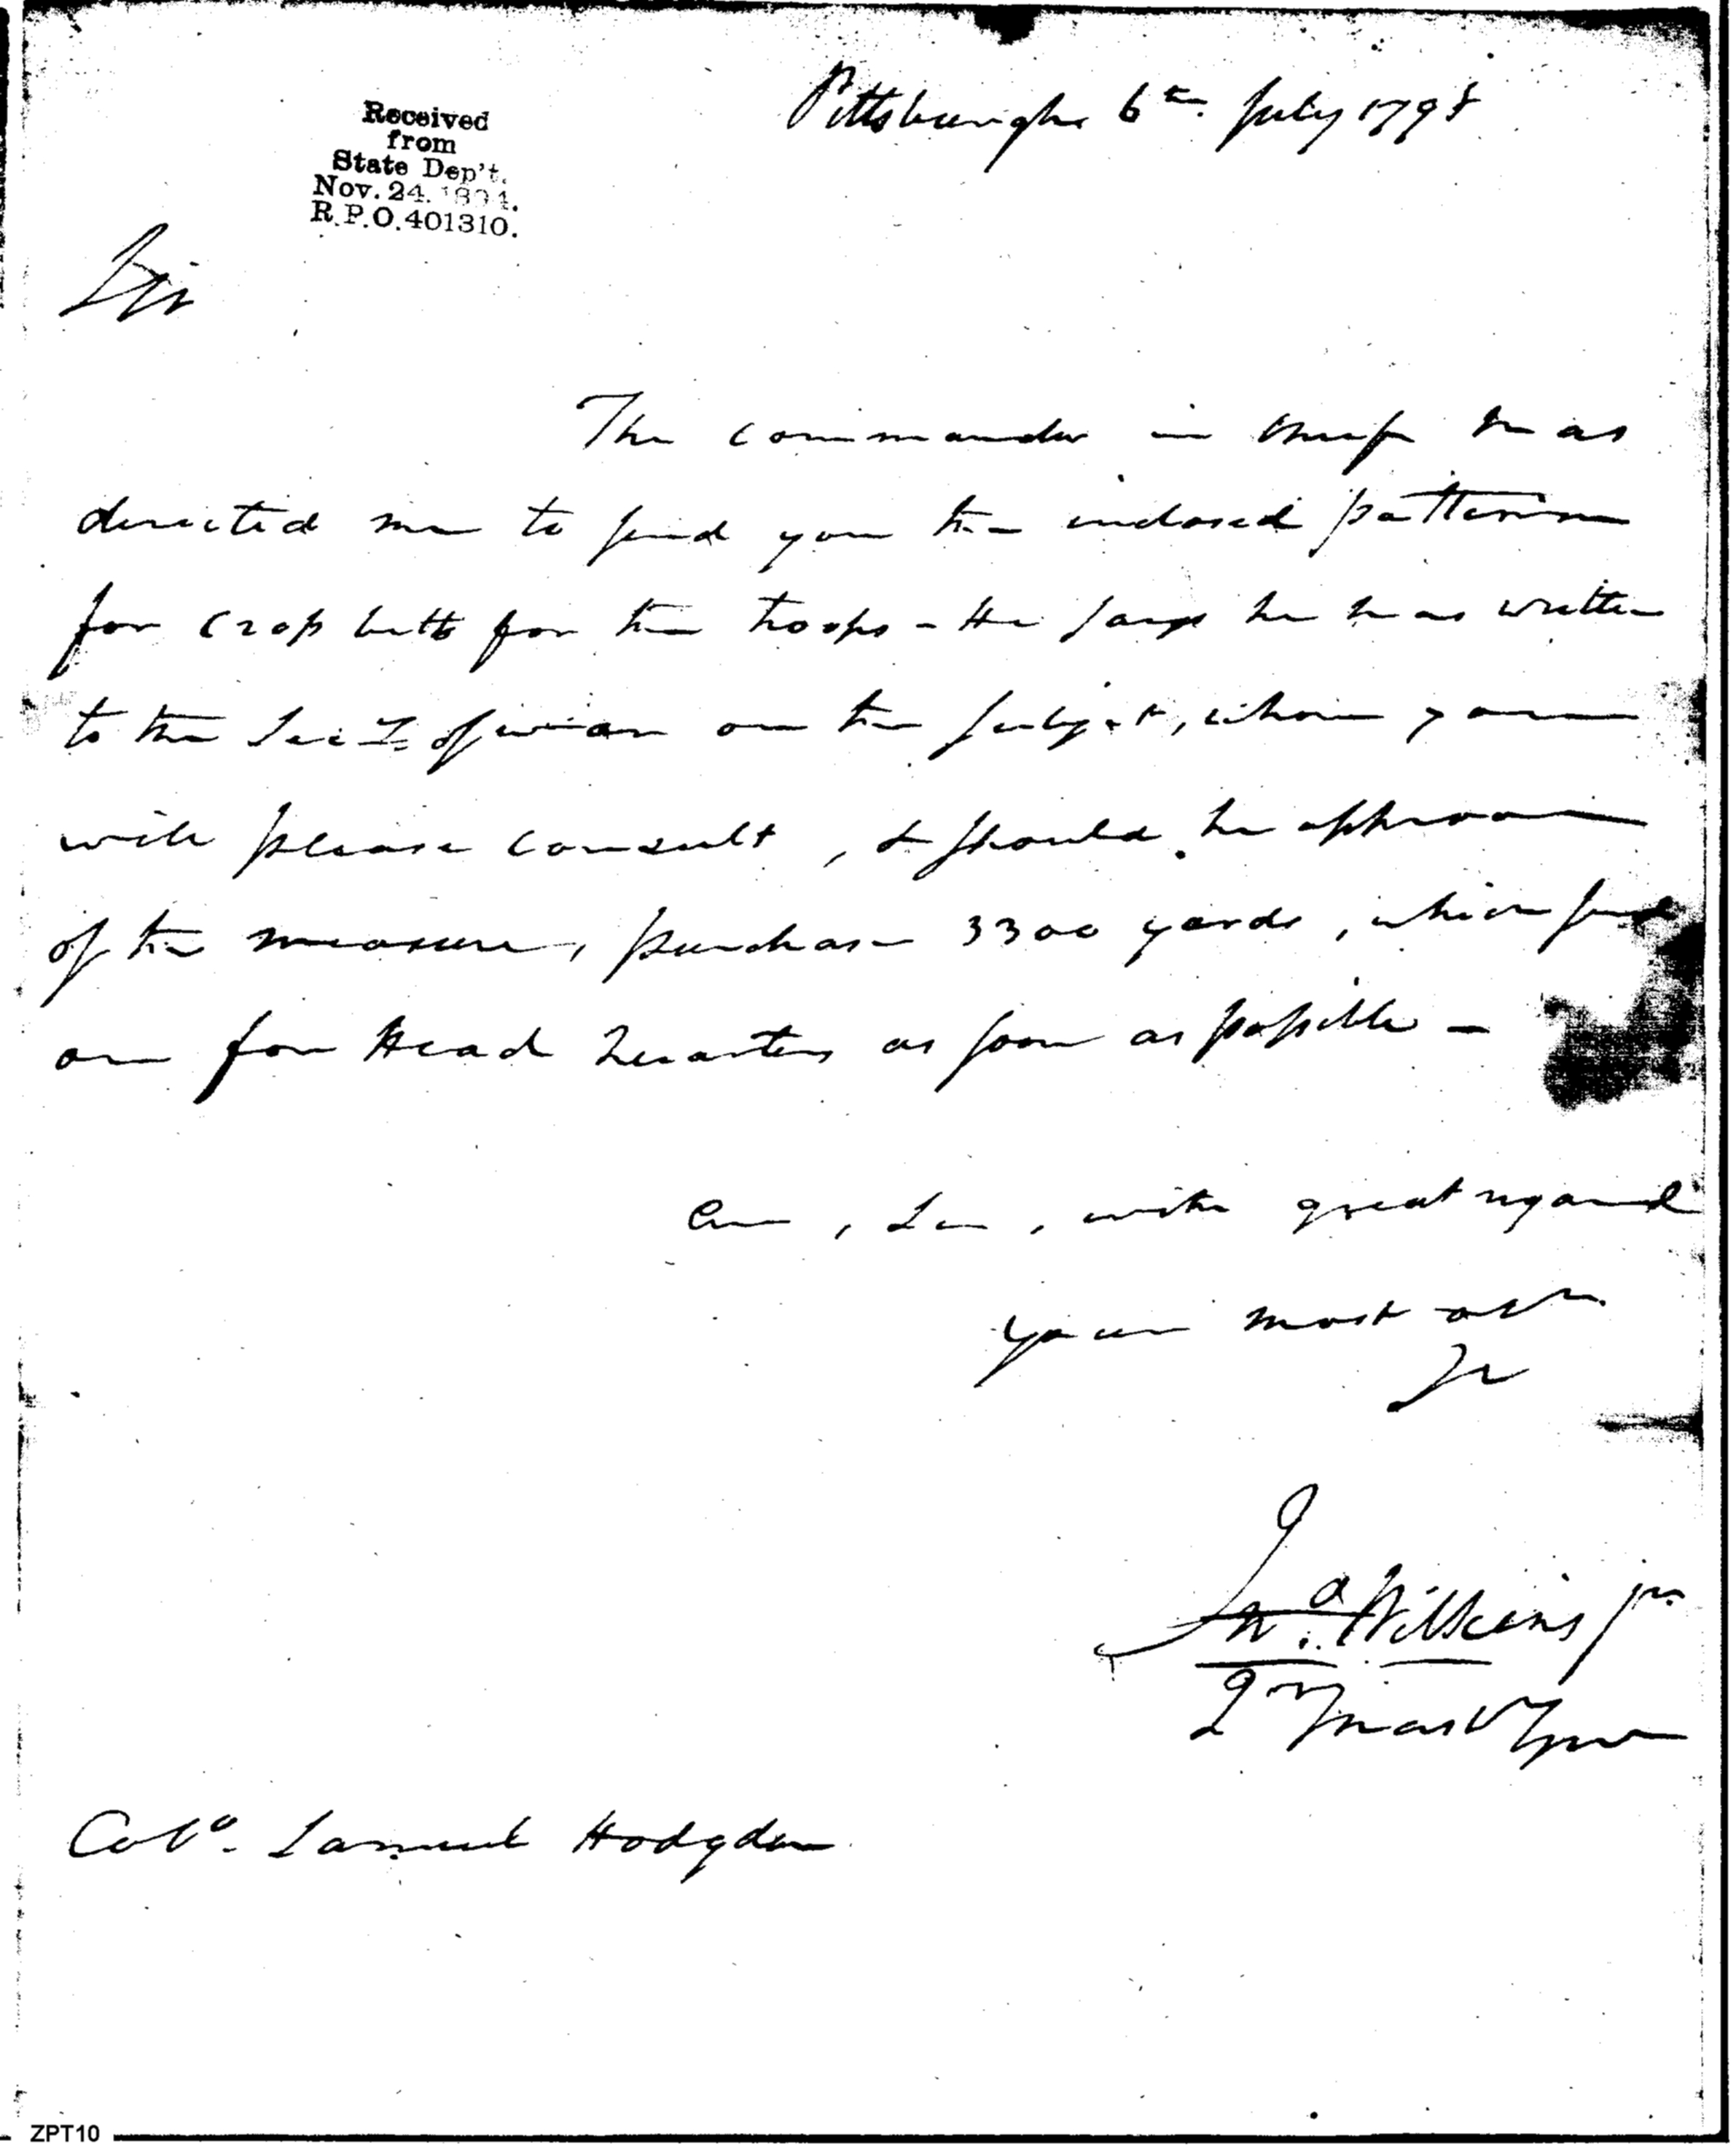 Pittsburgh 6th July 1798
Received
from
State Dep't.
Nov. 24. 1894.
R.P.O. 401310.
Sir
The commander in chief has
directed me to send you the inclosed pattern
for Cross belts for the troops - He says he has written
to the Secy. of war on the subject, whom you
will please consult, & should he approve
of the measure, purchase 3300 yards, which send
on for Head Quarters as soon as possible -
Am, Sir, with great regard
your most obt.
Jno. Wilkins jr.
Qr Mast Gen
Colo. Samuel Hodgdon
ZPT10